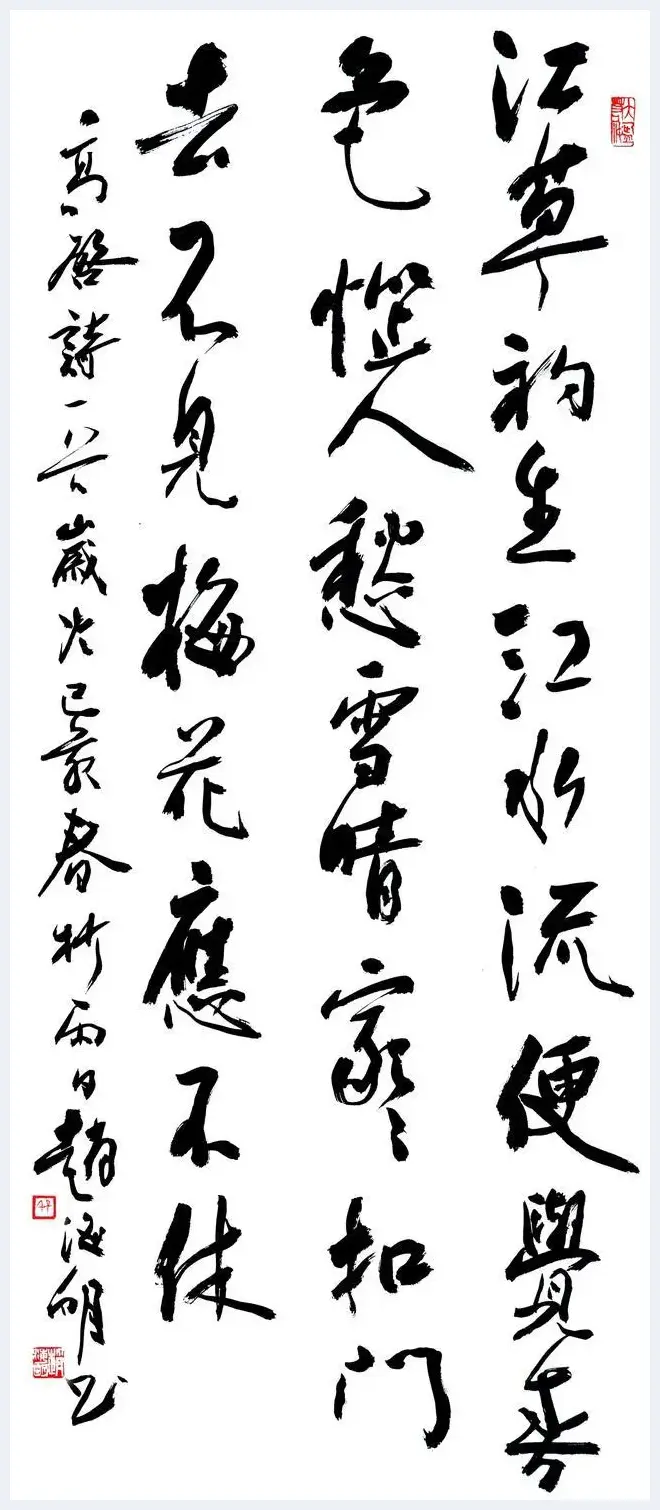 江草初生江水流便覺春
色惱人愁雪晴家〻扣門
去不見梅花應不休
高啓詩一首歲次己亥春杪雨日趙海明书